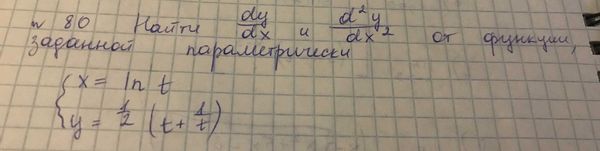 № 80 Найти dy/dx и d²y/dx² от функции,
заданной параметрически
{ x = ln t
{ y = 1/2 (t + 1/t)